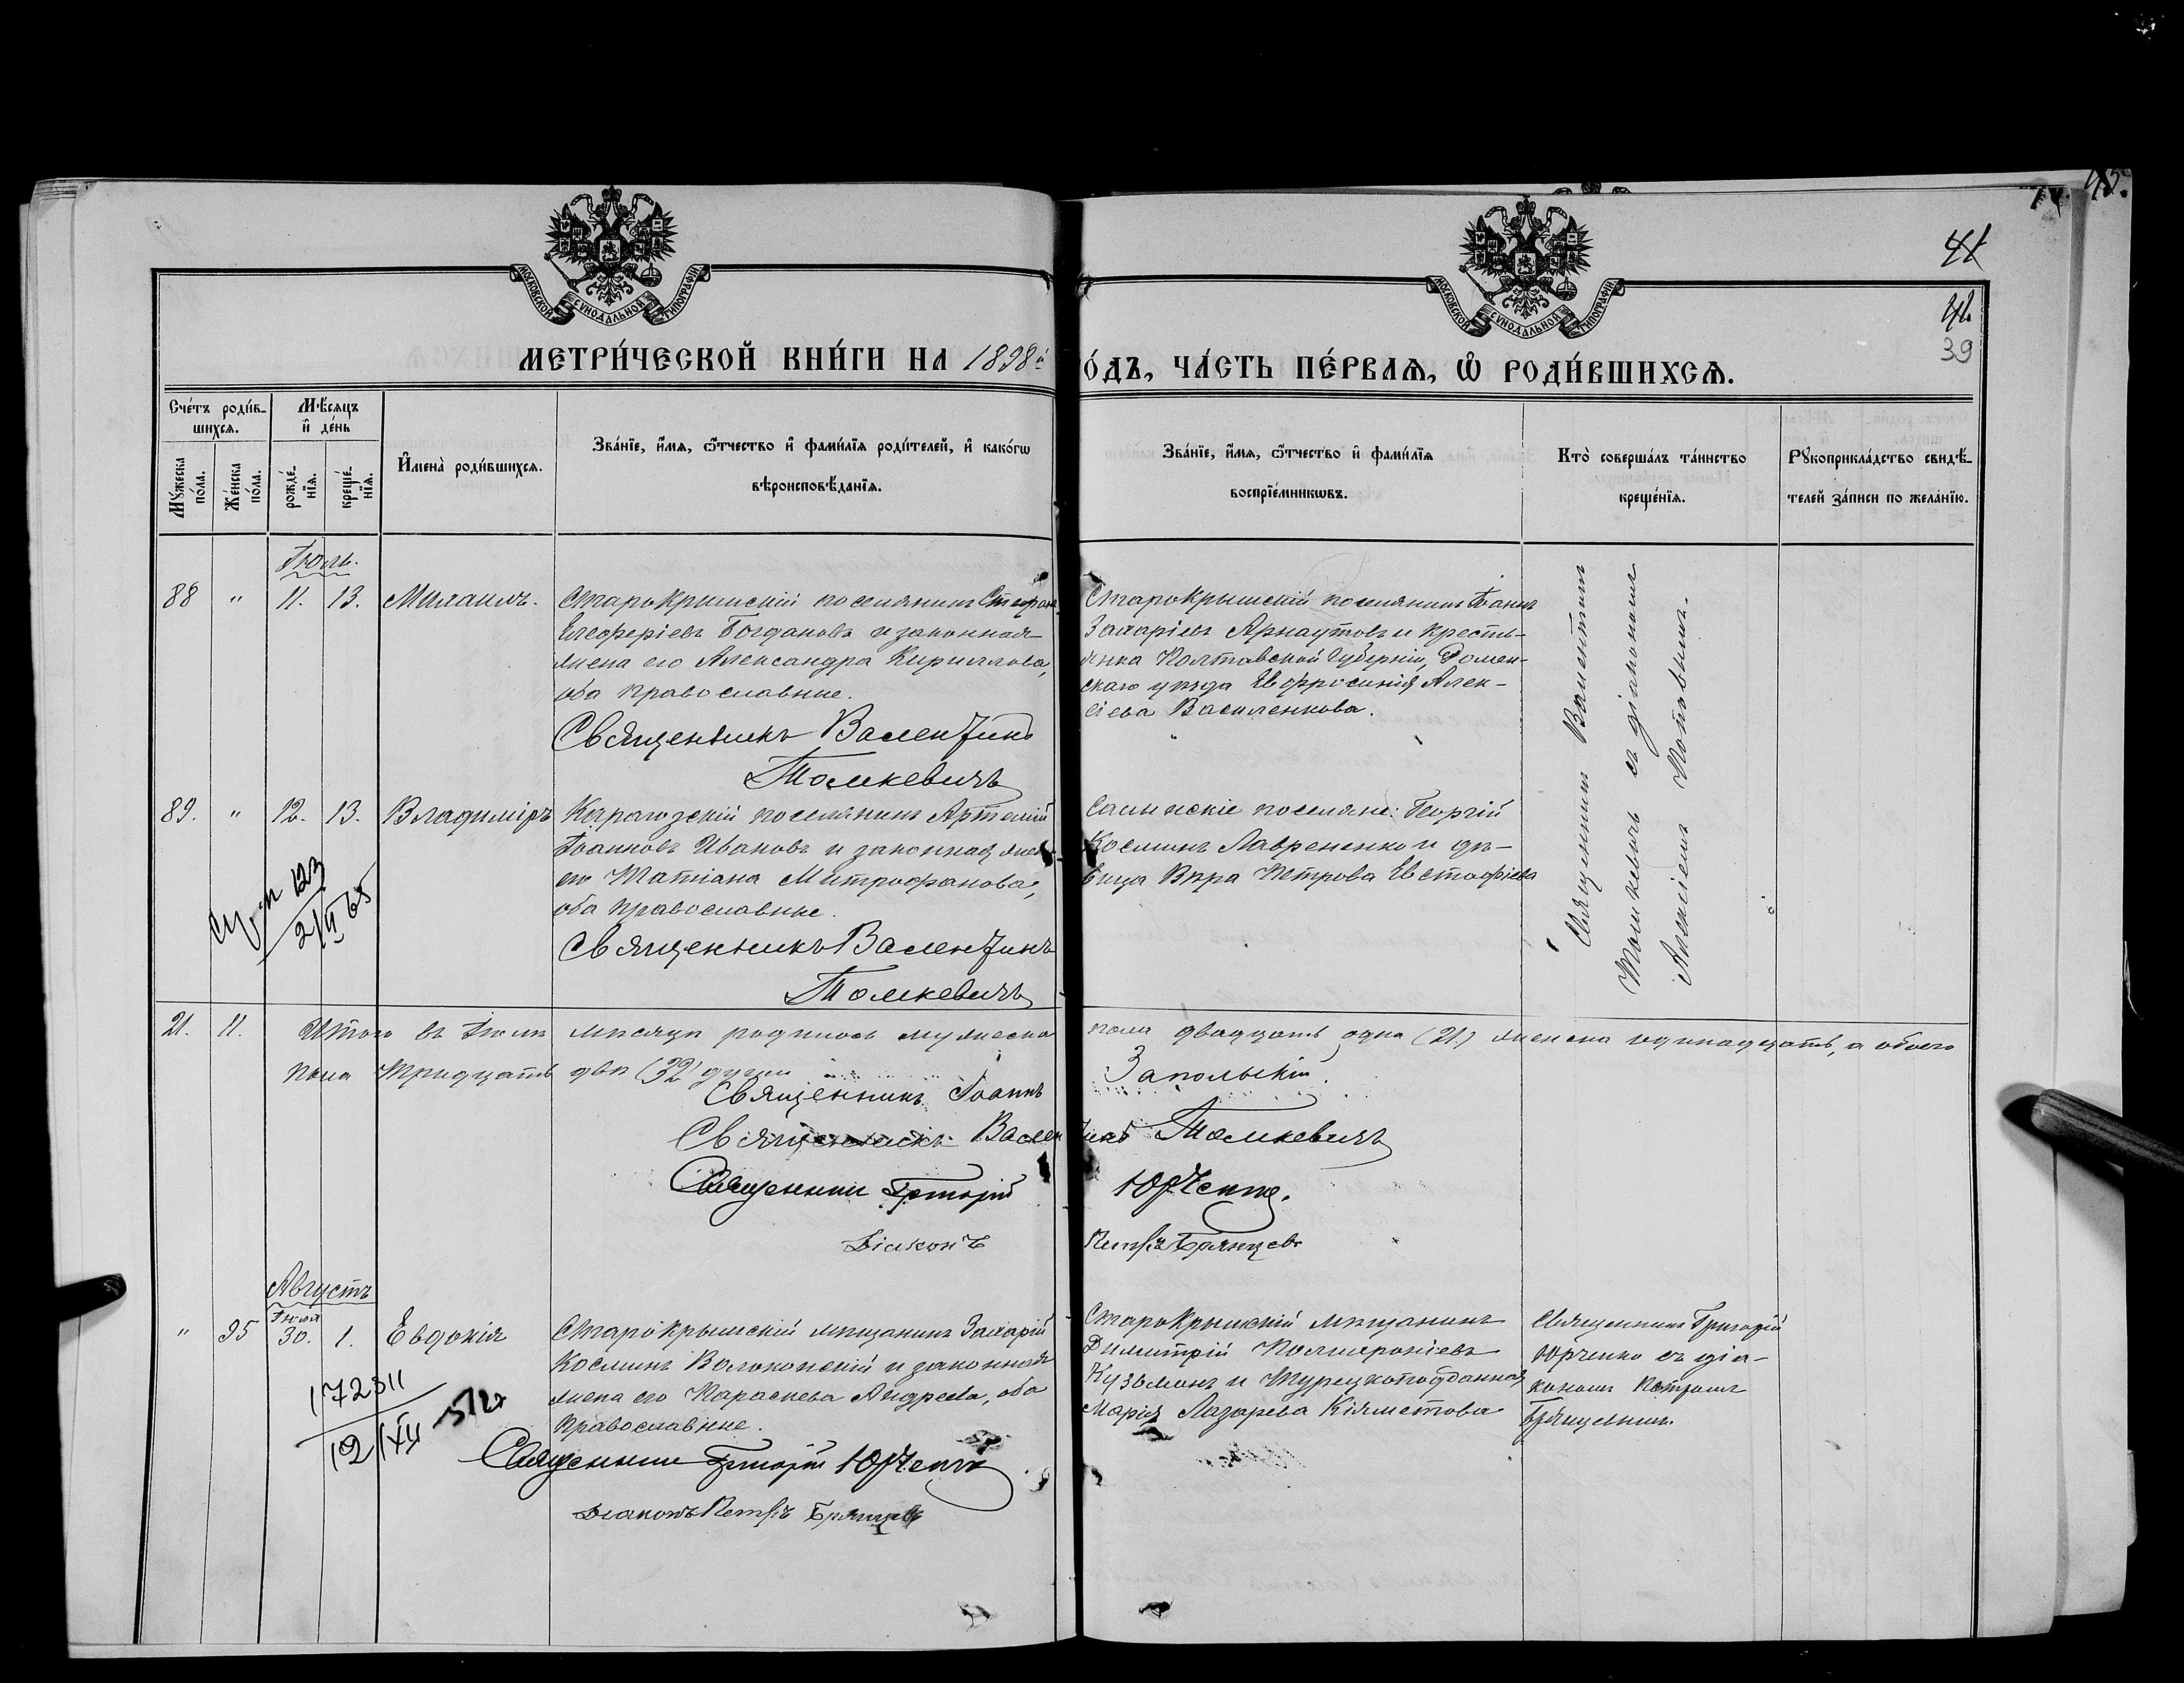 45.
41
42
39
МОСКОВСКОЙ СѴНОДАЛЬНОЙ ТИПОГРАФІИ
МОСКОВСКОЙ СѴНОДАЛЬНОЙ ТИПОГРАФІИ
МЕТРИ́ЧЕСКОЙ КНИ́ГИ НА 1898й
О́ДЪ, ЧА́СТЬ ПЕ́РВАѦ, Ѡ҆ РОДИ́ВШИХСѦ.
Сче́тъ роди́в-
шихся.
Мꙋ́жеска по́ла.
Же́нска по́ла.
Мѣ́сяцъ
и҆ де́нь
рожде́нїя.
креще́нїя.
И҆мена̀ роди́вшихся.
Зва́нїе, и҆́мя, ѻ҆́тчество и҆ фами́лїя роди́телей, и҆ како́гѡ
вѣроисповѣ́данїя.
Зва́нїе, и҆́мя, ѻ҆́тчество и҆ фами́лїя
воспрїе́мникѡвъ.
Кто̀ соверша́лъ та́инство
креще́нїя.
Рꙋкоприкла́дство свидѣ́-
телей за́писи по жела́нїю.
Іюль.
88 " 11. 13. Михаилъ.
Старокрымскій поселянинъ Стефанъ
Елеферіевъ Богдановъ и законная
жена его Александра Кириллова,
оба православные.
Священникъ Валентинъ
Томкевичъ
Старокрымскій поселянинъ Іоаннъ
Захаріевъ Арнаутовъ и кресть-
янка Полтавской губерніи, Ромен-
скаго уѣзда Евфросинія Алек-
сіева Василенкова.
Священникъ Валентинъ
Томкевичъ съ діакономъ
Алексіемъ
89. " 12. 13. Владиміръ
Карагозскій поселянинъ Артемій
Іоанновъ Ивановъ и законная жена
его Татіана Митрофанова,
оба православные.
Священникъ Валентинъ
Томкевичъ
Салынскіе поселяне: Георгій
Косминъ Лаврененко и дѣ-
вица Вѣра Петрова Евстафіева
123
2/II 65
21. 11. Итого въ Іюлѣ мѣсяцѣ родилось мужеска
пола двадцать одна (21) женска одинадцать, а обоего
пола тридцать двѣ (32) души
Священникъ Іоаннъ Запольскій.
Священникъ Валентинъ Томкевичъ
Священникъ Григорій Юрченко.
Діаконъ Петръ Брянцевъ
Августъ
" 95 Іюля 30. 1. Евдокія
Старокрымскій мѣщанинъ Захарій
Косминъ Волоконскій и законная
жена его Параскева Андреева, оба
православные.
Священникъ Григорій Юрченко
Діаконъ Петръ Брянцевъ
Старокрымскій мѣщанинъ
Димитрій Полихроніевъ
Кузьминъ и Турецкоподданная
Марія Лазарева Кіяметова
Священникъ Григорій
Юрченко съ діа-
кономъ Петромъ
Брянцевымъ.